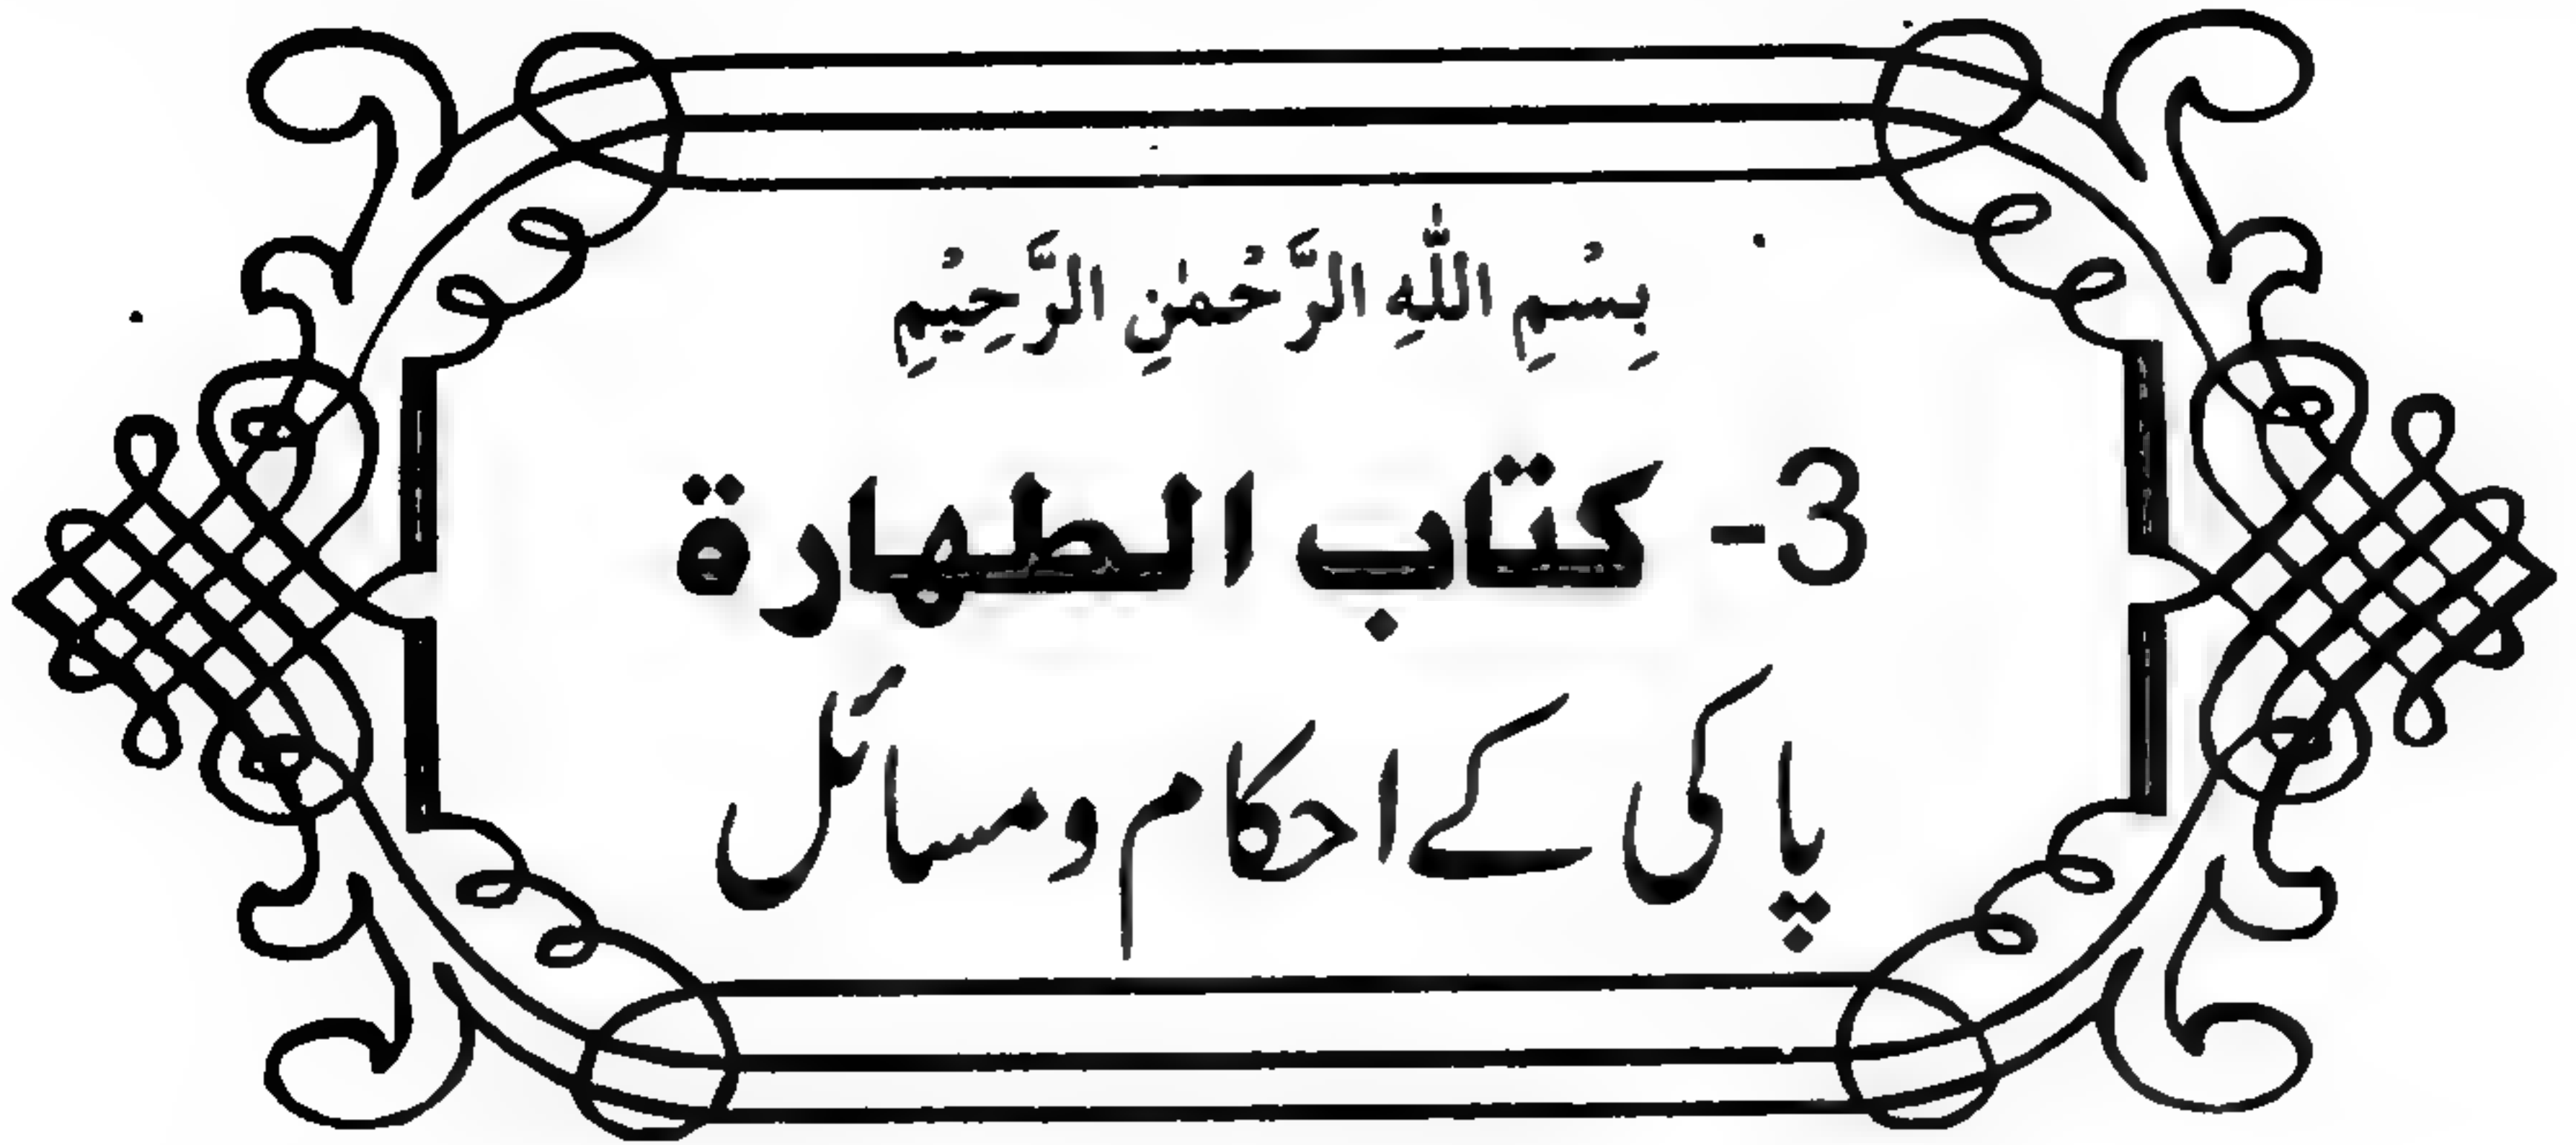 بِسْمِ اللّٰهِ الرَّحْمٰنِ الرَّحِيْمِ
3- كتاب الطهارة
پاکی کے احکام و مسائل